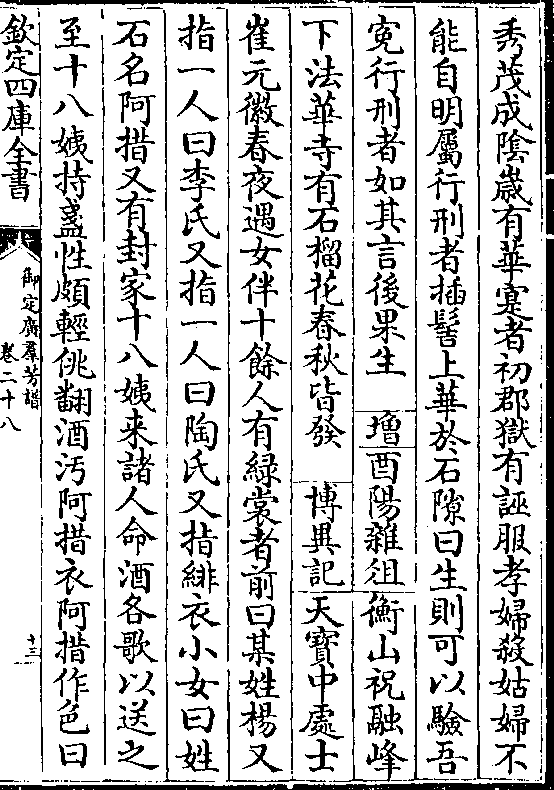 秀茂成陰歲有華寔者初郡獄有誣服孝婦殺姑婦不
能自明屬行刑者插髻上華於石隙曰生則可以驗吾
寃行刑者如其言後果生 增酉陽雜俎衡山祝融峰
下法華寺有石榴花春秋皆發 博異記天寶中處士
崔元徽春夜遇女伴十餘人有緑裳者前曰某姓楊又
指一人曰李氏又指一人曰陶氏又指緋衣小女曰姓
石名阿措又有封家十八姨来諸人命酒各歌以送之
至十八姨持盞性頗輕佻翻酒汚阿措衣阿措作色曰
欽定四庫全書
御定廣羣芳譜
卷二十八
十三